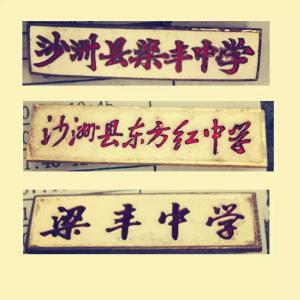 沙洲县梁丰中学
沙洲县东方红中学
梁丰中学